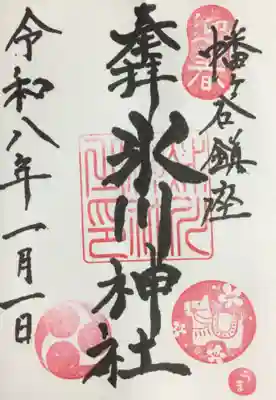 幡ヶ谷鎮座
奉拝
氷川神社
令和八年一月一日
うま